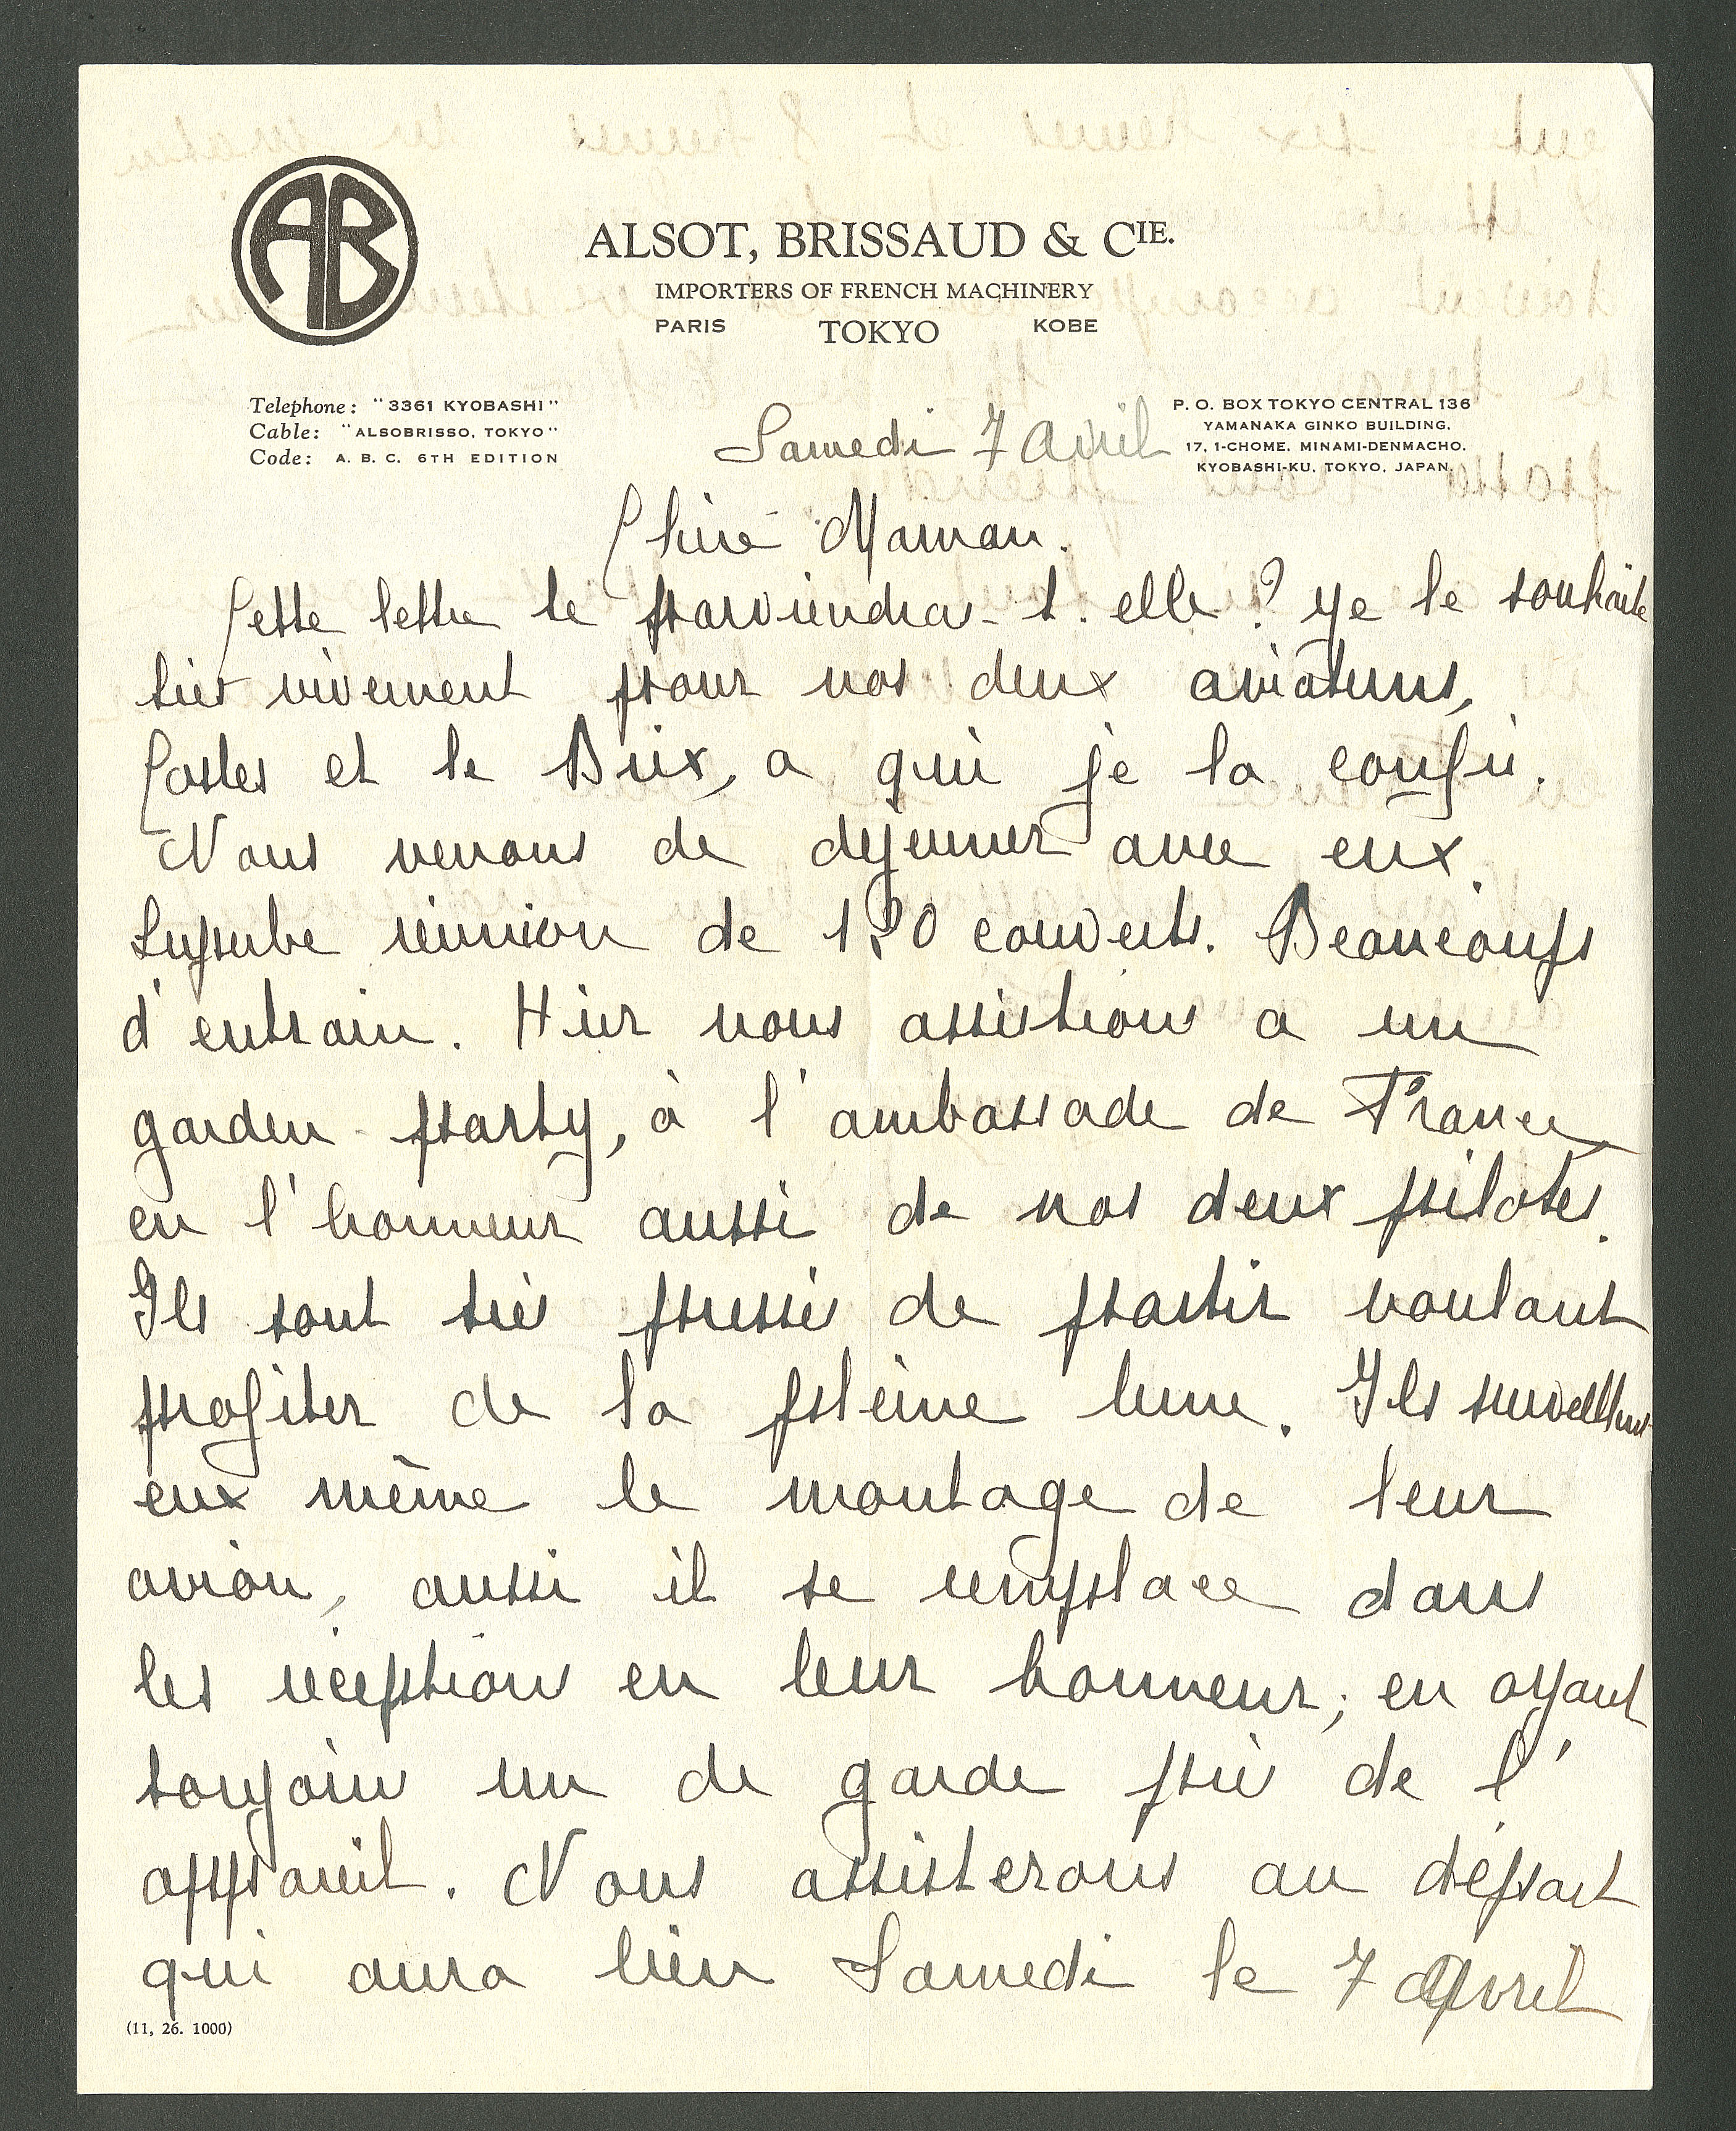 AB
ALSOT, BRISSAUD & CIE.
IMPORTERS OF FRENCH MACHINERY
PARIS TOKYO KOBE
Telephone: "3361 KYOBASHI"
Cable: "ALSOBRISSO, TOKYO"
Code: A. B. C. 6TH EDITION
P. O. BOX TOKYO CENTRAL 136
YAMANAKA GINKO BUILDING.
17, 1-CHOME, MINAMI-DENMACHO.
KYOBASHI-KU, TOKYO, JAPAN.
Samedi 7 Avril
Chère Maman.
Cette lettre te parviendra-t.elle? Je le souhaite
très vivement pour nos deux aviateurs,
Costes et le Brix, a qui je la confie.
Nous venons de dejeuner avec eux.
Superbe réunion de 120 couverts. Beaucoups
d'entrain. Hier nous assistions a un
garden-party, à l'ambassade de France
en l'honneur aussi de nos deux pilotes.
Ils sont très pressés de partir voulant
profiter de la pleine lune. Ils surveillent
eux même le montage de leur
avion, aussi il se remplace dans
les réceptions en leur honneur; en ayant
toujours un de garde près de l'
appareil. Nous assisterons au départ
qui aura lieu Samedi le 7 Avril
(11, 26. 1000)